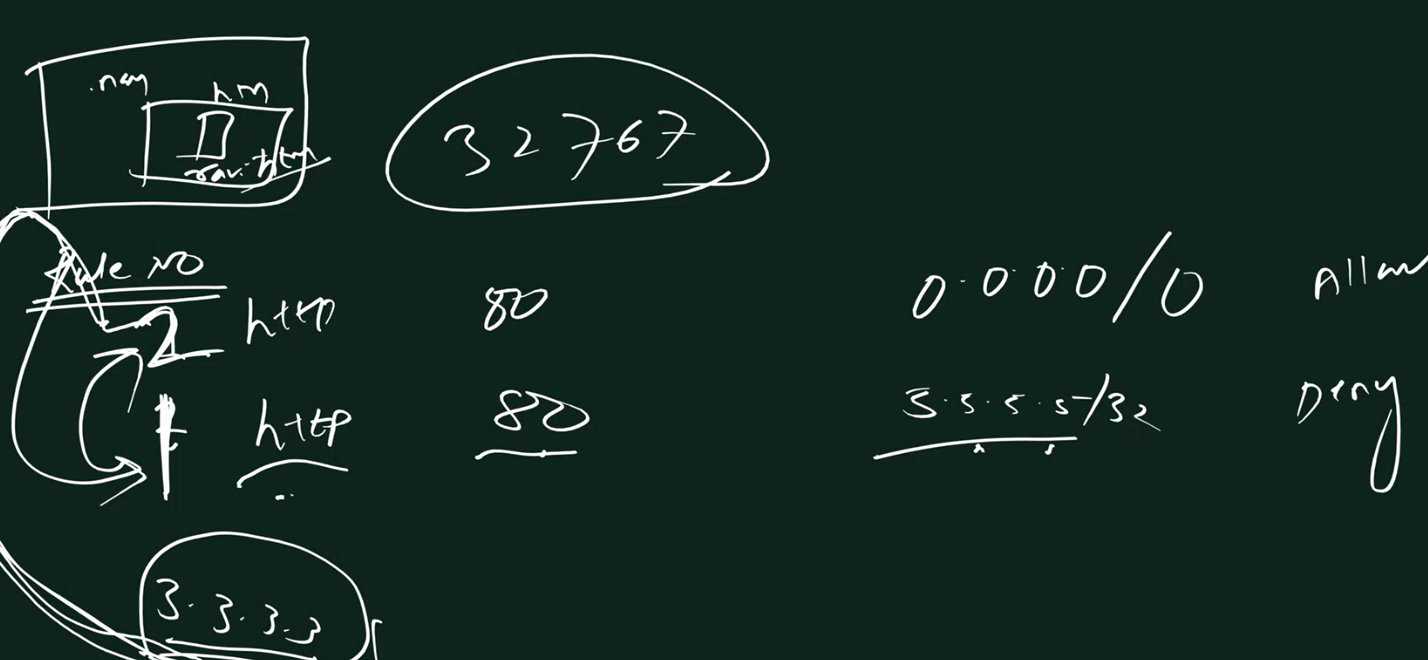 32767
Rule NO
2 http 80 0.0.0.0/0 Allow
1 http 80 5.5.5.5/32 Deny
3.3.3.3